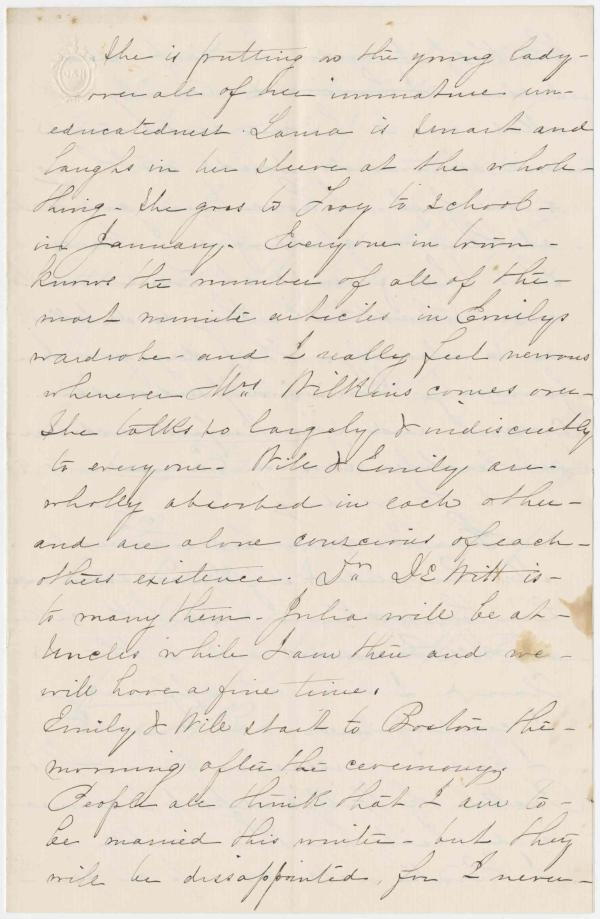 She is putting on the young lady-
over all of her immature un-
educatedness. Laura is smart and
laughs in her sleeve at the whole-
thing- She goes to Troy to school-
in January- Everyone in town-
knows the number of all of the-
most minute articles in Emilys
wardrobe- and I really feel nervous
whenever Mrs Wilkins comes over-
She talks so largely & indiscreetly
to everyone- Will & Emily are-
wholly absorbed in each other-
and are alone conscious of each-
others existence. Dr DeWitt is-
to marry them- Julia will be at-
Uncles while I am there and we-
will have a fine time.
Emily & Will start to Boston the-
morning after the ceremony,
People all think that I am to-
be married this winter- but they
will be dissappointed, for I never-